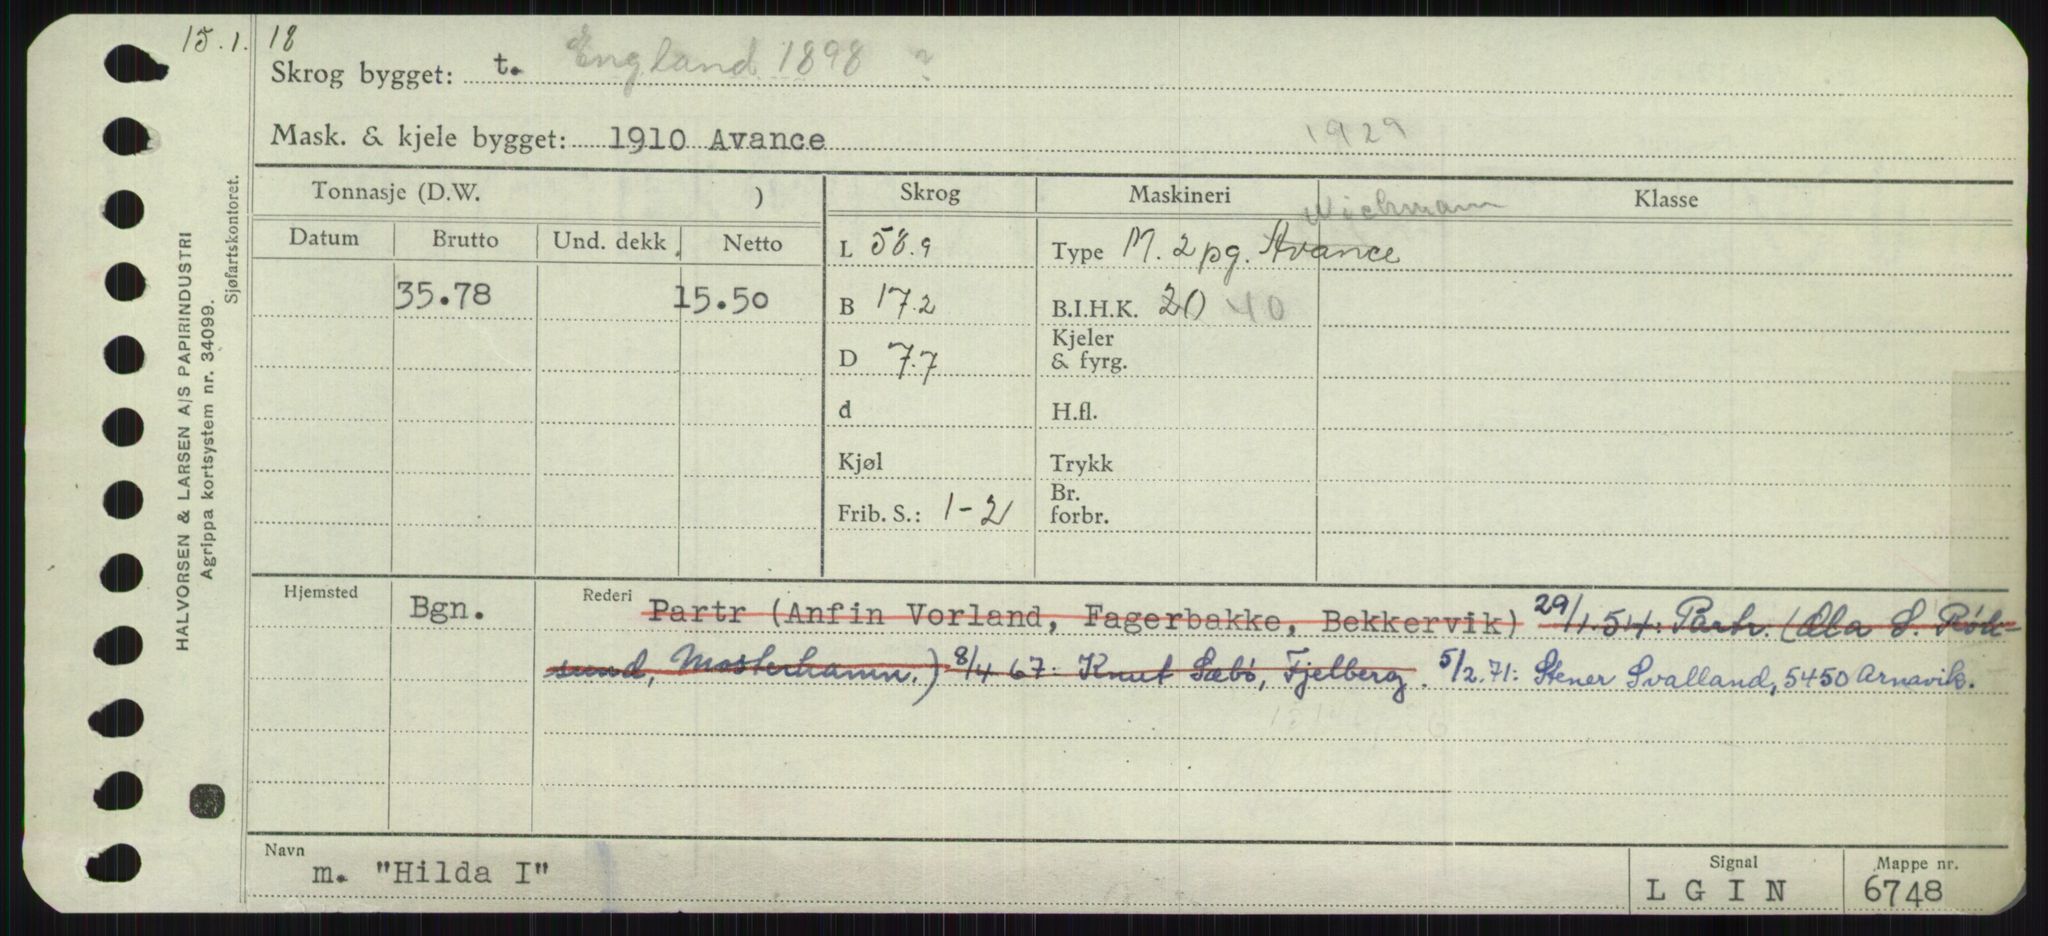 15.1. 18
Skrog bygget: t. England 1898 ?
Mask. & kjele bygget: 1910 Avance 1929
Tonnasje (D.W. ) Skrog Maskineri Klasse
Wichmann
Datum Brutto Und. dekk. Netto L 58.9 Type M. 2 pg. Avance
35.78 15.50 B 17.2 B.I.H.K. 20 40
Kjeler
D 7.7 & fyrg.
d H.fl.
Kjøl Trykk
Br.
Frib. S.: 1-2 forbr.
Hjemsted Bgn. Rederi Partr (Anfin Vorland, Fagerbakke, Bekkervik) 29/1.54: Partr. (Ola S. Røk-
sund, Mosterhamn.) 8/4 67: Knut Sæbö, Fjelberg. 5/2.71: Stener Svalland, 5450 Arnavik.
Navn Signal Mappe nr.
m. "Hilda I" LGIN 6748
HALVORSEN & LARSEN A/S PAPIRINDUSTRI
Agrippa kortsystem nr. 34099.
Sjøfartskontoret.